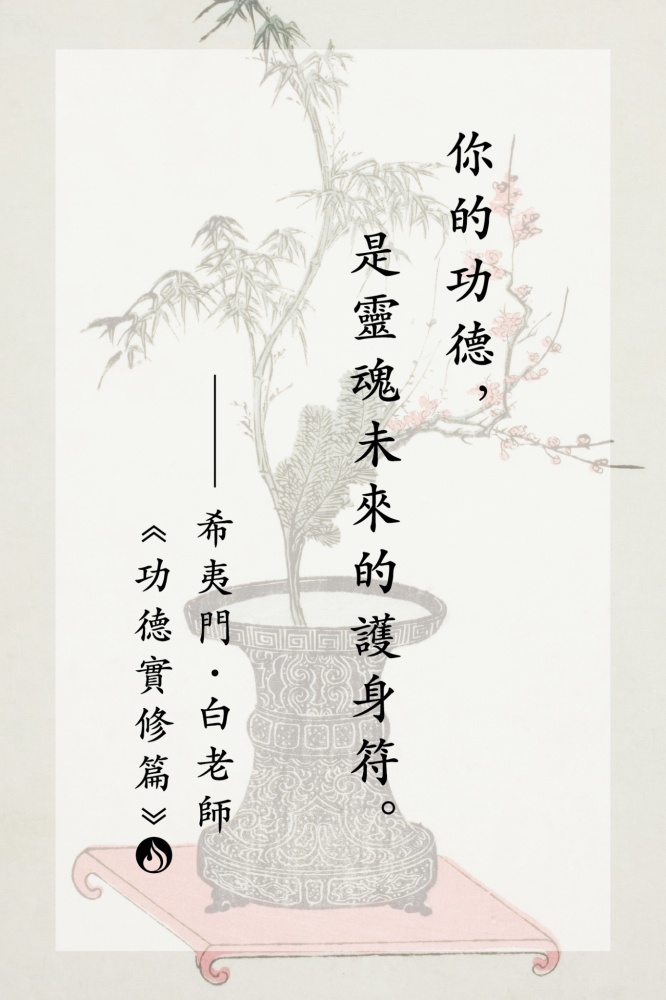 你的功德，
是靈魂未來的護身符。
——希夷門・白老師
《功德實修篇》